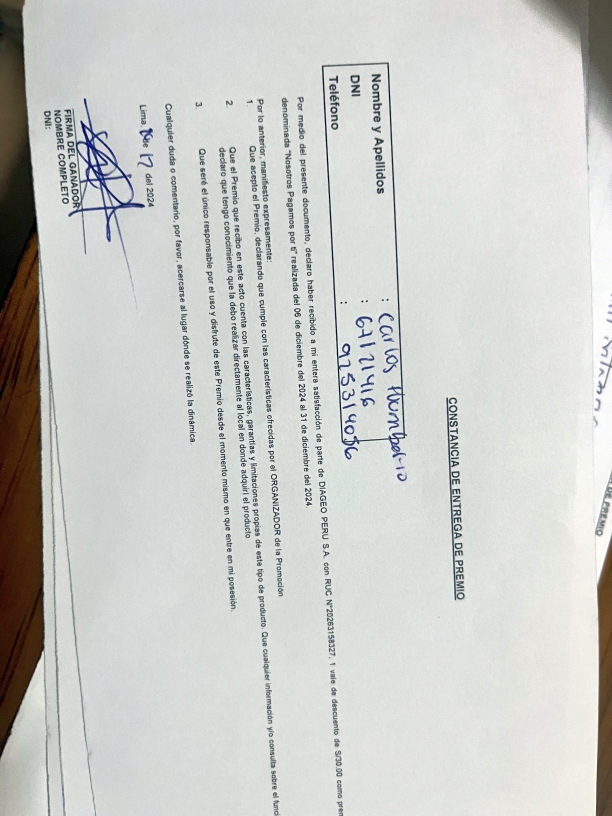 CONSTANCIA DE ENTREGA DE PREMIO
Nombre y Apellidos : Carlos Humberto
DNI : 67121416
Teléfono : 925314056
Por medio del presente documento, declaro haber recibido a mi entera satisfacción de parte de DIAGEO PERU S.A. con RUC N°20263158327, 1 vale de descuento de S/30.00 como
denominada "Nosotros Pagamos por ti" realizada del 06 de diciembre del 2024 al 31 de diciembre del 2024.
Por lo anterior, manifiesto expresamente:
1. Que acepto el Premio, declarando que cumple con las características ofrecidas por el ORGANIZADOR de la Promoción
2. Que el Premio que recibo en este acto cuenta con las características, garantías y limitaciones propias de este tipo de producto. Que cualquier información y/o consulta sobre el
declaro que tengo conocimiento que la debo realizar directamente al local en donde adquirí el producto
3. Que seré el único responsable por el uso y disfrute de este Premio desde el momento mismo en que entre en mi posesión.
Cualquier duda o comentario, por favor, acercarse al lugar dónde se realizó la dinámica.
Lima, de 12 del 2024
FIRMA DEL GANADOR
NOMBRE COMPLETO
DNI:
DE PREMIO